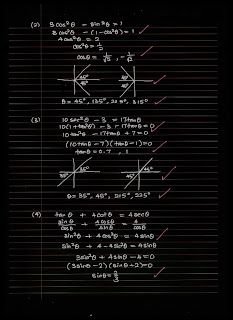 (2) 3cos²θ - sin²θ = 1
3cos²θ - (1-cos²θ) = 1
4cos²θ = 2
cos²θ = 1/2
cosθ = 1/√2, -1/√2
45° 45°
45° 45°
θ = 45°, 135°, 225°, 315°
(3) 10 sec²θ - 3 = 17tanθ
10(1+tan²θ) - 3 - 17tanθ = 0
10tan²θ - 17tanθ + 7 = 0
(10tanθ - 7)(tanθ - 1) = 0
tanθ = 0.7, 1
35° 45°
35° 45°
θ = 35°, 45°, 215°, 225°
(4) tanθ + 4cosθ = 4secθ
sinθ/cosθ + 4cosθ = 4/cosθ
sinθ + 4cos²θ = 4
3sin²θ + 4sinθ - 4 = 0
(3sinθ - 2)(sinθ + 2) = 0
sinθ = 2/3